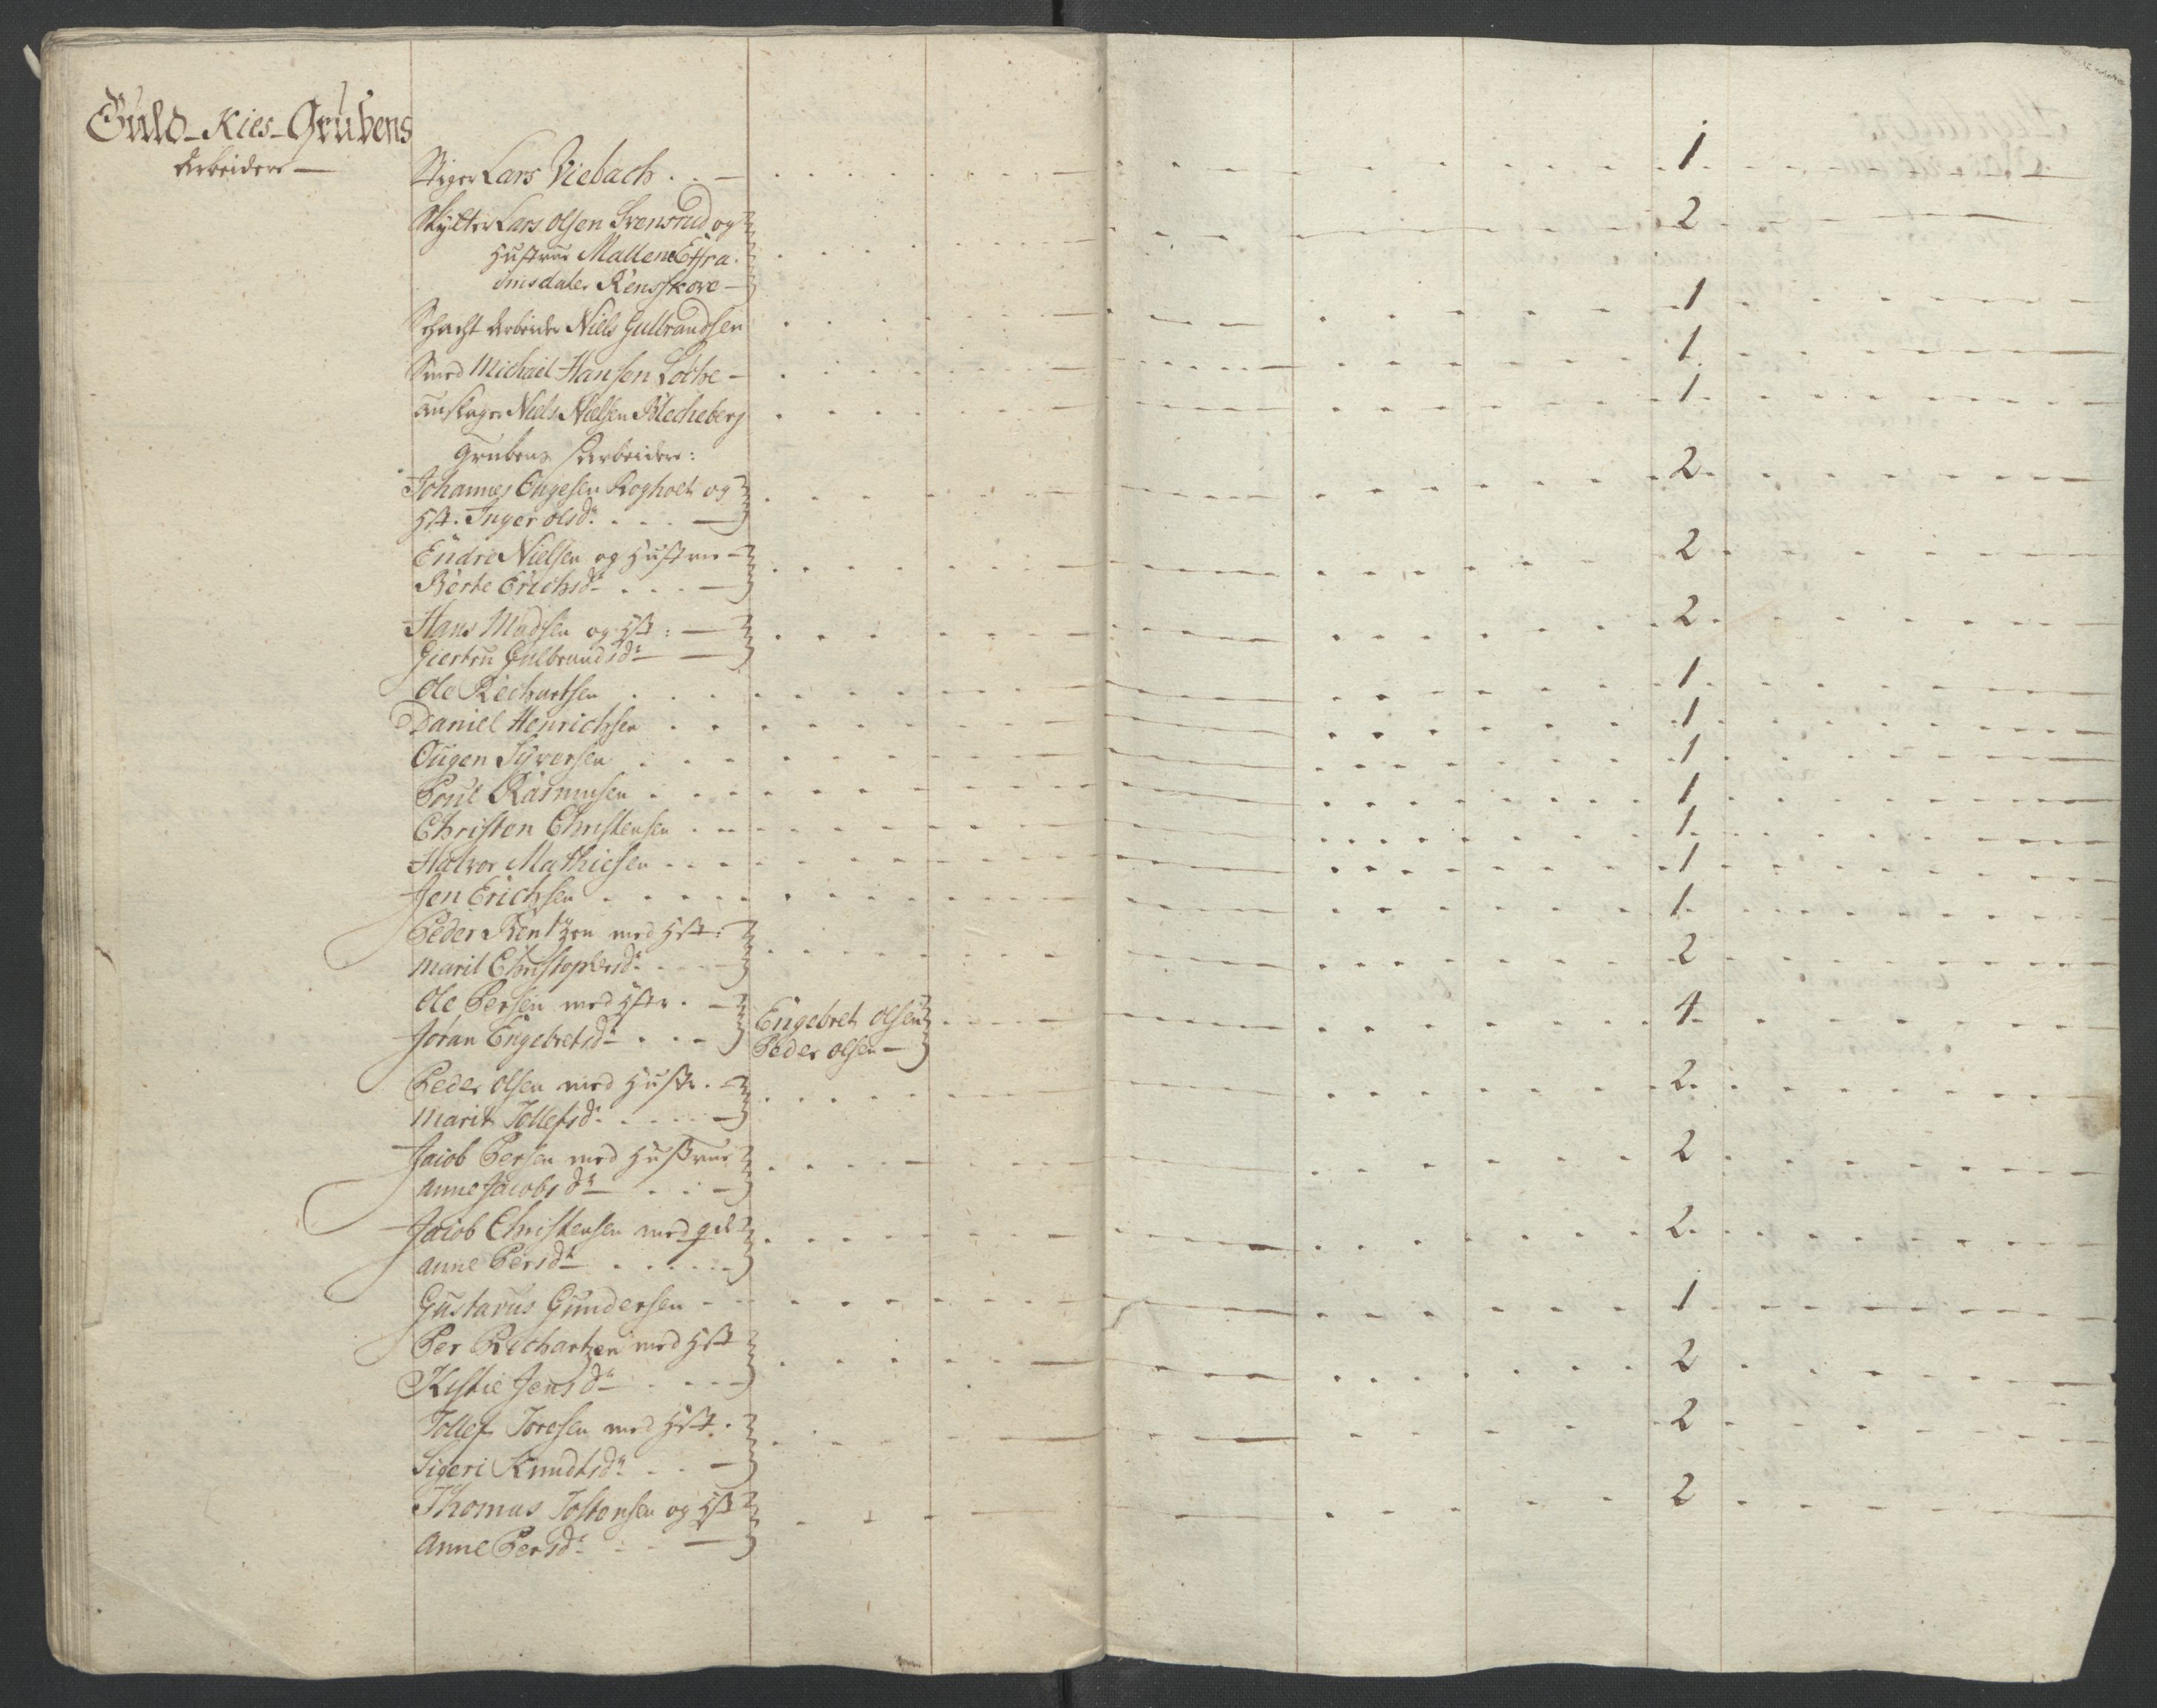 Guld-Kies-Grubens
Arbeidere
Stiger Lars Viebach 1
Skytter Lars Olsen Svensrud og 2
Hustrue Mallene Effra
imsdater Rensskove
Schacht Arbeider Niels Gulbrandsen 1
Smed Michael Hansen Lôche 1
Niels Nielsen Blecheberg 1
Grubens Arbeidere:
Johannes Engesen og 2
Hst. Inger Olsdr
Endre Nielsen og Hustrue 2
Berte Erichsdr
Hans Madsen og Hst: 2
Giertru Gulbrandsdr
Ole Rechartsen 1
Daniel Henrichsen 1
Ougen Syversen 1
Poul Rasmusen 1
Christen Christensen 1
Halvor Mathiesen 1
Jen Erichsen 1
Peder Bentzen med Hst: 2
Marit Christophersdr
Ole Persen med Hstr. Engebret Olsen 4
Joran Engebretsdr Peder Olsen
Peder Olsen med Hustr. 2
Marit Tollefsdr
Jacob Persen med Hustrue 2
Anne Jacobsdr
Jacob Christensen med 2
Anne Persdr
Gustavus Gundersen 1
Per Rechartzen med Hst 2
Kistie Jensdr
Tollef Toresen med Hst. 2
Sigeri Knudtsdr
Thomas Tostensen og Hst 2
Anne Persdr